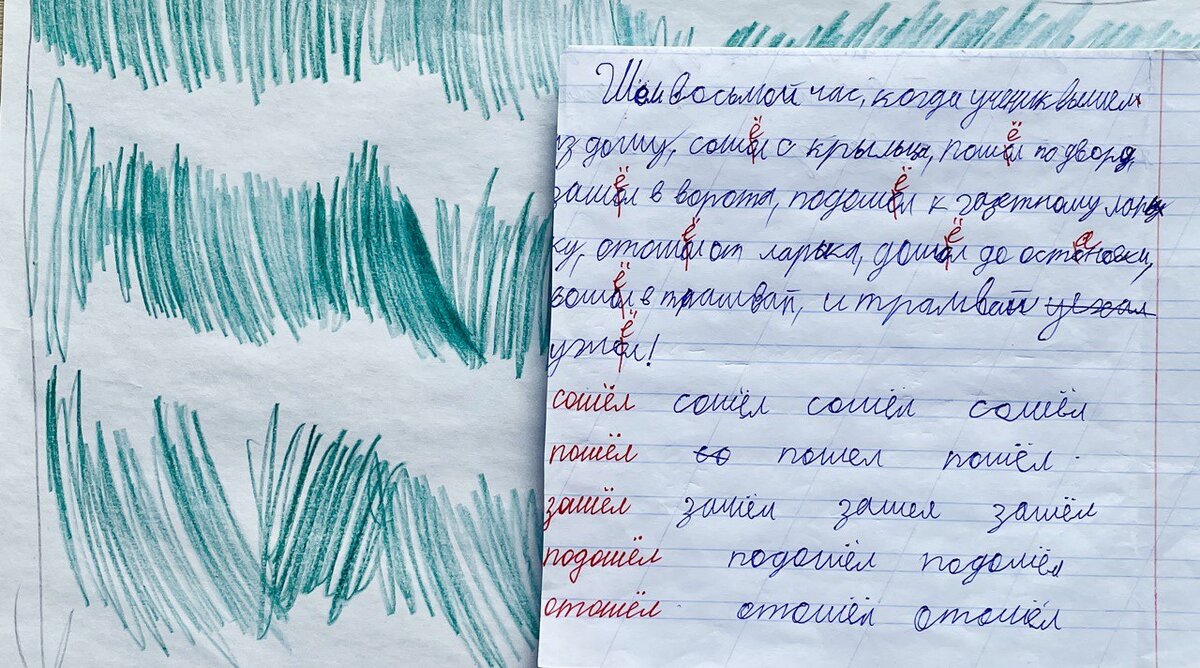 Шел восьмой час, когда ученик вышел
из дому, сошол с крыльца, пошол по двору,
зашол в ворота, подошол к газетному ларь
ку, отошол от ларька, дошол до остоновки,
вошол в трамвай, и трамвай уехал
ушол!
сошёл сошёл сошёл сошёл
пошёл со пошел пошёл
зашёл зашёл зашел зашёл
подошёл подошёл подошёл
отошёл отошёл отошёл